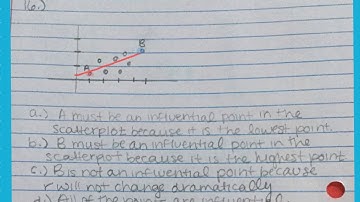 16.)
B
A
a.) A must be an influential point in the
scatterplot because it is the lowest point.
b.) B must be an influential point in the
scatterpot because it is the highest point
c.) B is not an influential point because
r will not change dramatically
d.) All of the points are influential